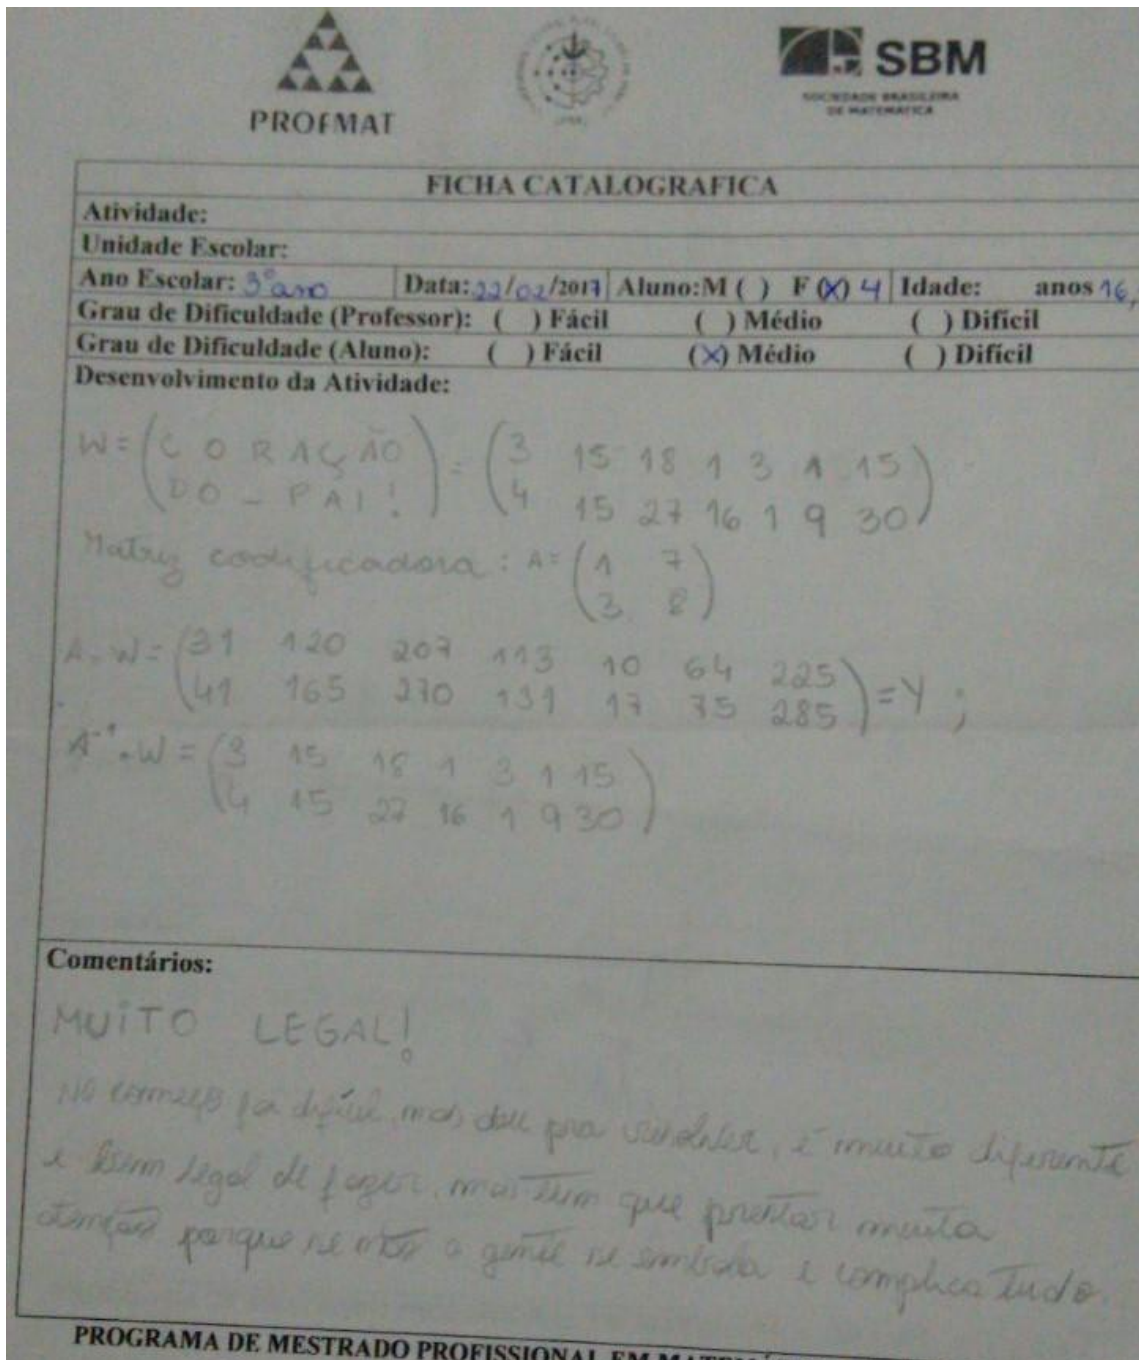 PROFMAT
SBM
SOCIEDADE BRASILEIRA
DE MATEMÁTICA
FICHA CATALOGRAFICA
Atividade:
Unidade Escolar:
Ano Escolar: 3º ano Data: 22/02/2017 Aluno:M ( ) F (X) 4 Idade: anos 16,
Grau de Dificuldade (Professor): ( ) Fácil ( ) Médio ( ) Difícil
Grau de Dificuldade (Aluno): ( ) Fácil (X) Médio ( ) Difícil
Desenvolvimento da Atividade:
W = (C O R A Ç Ã O) = (3 15 18 1 3 1 15)
(D O - P A I !) (4 15 27 16 1 9 30)
Matriz codificadora: A = (1 7)
(3 8)
A . W = (31 120 207 113 10 64 225) = Y ;
(41 165 270 131 17 75 285)
A⁻¹ . W = (3 15 18 1 3 1 15)
(4 15 27 16 1 9 30)
Comentários:
MUITO LEGAL!
No começo foi difícil, mas deu pra resolver, é muito diferente
e bem legal de fazer, mas tem que prestar muita
atenção porque se não a gente se embola e complica tudo.
PROGRAMA DE MESTRADO PROFISSIONAL EM